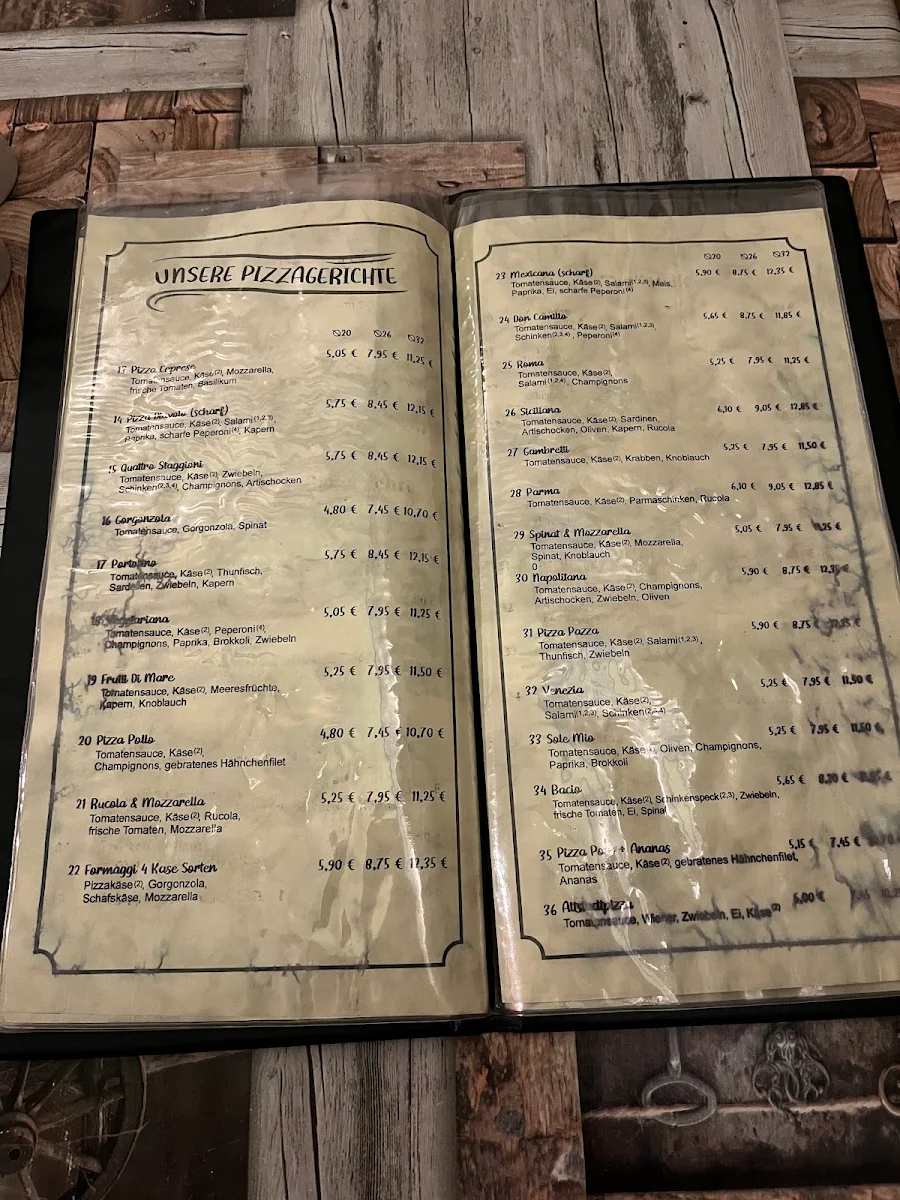 UNSERE PIZZAGERICHTE
∅20 ∅26 ∅32
Pizza Caprese 5,05 € 7,95 € 11,25 €
Tomatensauce, Käse(2), Mozzarella,
frische Tomaten, Basilikum
14 Pizza (scharf) 5,75 € 8,45 € 12,15 €
Tomatensauce, Käse(2), Salami(1,2,3),
Paprika, scharfe Peperoni(4), Kapern
15 Quattro Staggioni 5,75 € 8,45 € 12,15 €
Tomatensauce, Käse(2), Zwiebeln,
Schinken(2,3,4), Champignons, Artischocken
16 Gorgonzola 4,80 € 7,45 € 10,70 €
Tomatensauce, Gorgonzola, Spinat
17 Portofino 5,75 € 8,45 € 12,15 €
Tomatensauce, Käse(2), Thunfisch,
Sardellen, Zwiebeln, Kapern
18 Vegetariana 5,05 € 7,95 € 11,25 €
Tomatensauce, Käse(2), Peperoni(4),
Champignons, Paprika, Brokkoli, Zwiebeln
19 Frutti Di Mare 5,25 € 7,95 € 11,50 €
Tomatensauce, Käse(2), Meeresfrüchte,
Kapern, Knoblauch
20 Pizza Pollo 4,80 € 7,45 € 10,70 €
Tomatensauce, Käse(2),
Champignons, gebratenes Hähnchenfilet
21 Rucola & Mozzarella 5,25 € 7,95 € 11,25 €
Tomatensauce, Käse(2), Rucola,
frische Tomaten, Mozzarella
22 Formaggi 4 Käse Sorten 5,90 € 8,75 € 12,35 €
Pizzakäse(2), Gorgonzola,
Schafskäse, Mozzarella
∅20 ∅26 ∅32
23 Mexicana (scharf) 5,90 € 8,75 € 12,35 €
Tomatensauce, Käse(2), Salami(1,2,3), Mais,
Paprika, Ei, scharfe Peperoni(4)
24 Don Camillo 5,65 € 8,75 € 11,85 €
Tomatensauce, Käse(2), Salami(1,2,3),
Schinken(2,3,4), Peperoni(4)
25 Roma 5,25 € 7,95 € 11,25 €
Tomatensauce, Käse(2),
Salami(1,2,4), Champignons
26 Siciliana 6,10 € 9,05 € 12,85 €
Tomatensauce, Käse(2), Sardinen,
Artischocken, Oliven, Kapern, Rucola
27 Gambretti 5,25 € 7,95 € 11,50 €
Tomatensauce, Käse(2), Krabben, Knoblauch
28 Parma 6,10 € 9,05 € 12,85 €
Tomatensauce, Käse(2), Parmaschinken, Rucola
29 Spinat & Mozzarella 5,05 € 7,95 € 11,25 €
Tomatensauce, Käse(2), Mozzarella,
Spinat, Knoblauch
0
30 Napolitana 5,90 € 8,75 €
Tomatensauce, Käse(2), Champignons,
Artischocken, Zwiebeln, Oliven
31 Pizza Pazza 5,90 € 8,75 €
Tomatensauce, Käse(2), Salami(1,2,3),
Thunfisch, Zwiebeln
32 Venezia 5,25 € 7,95 € 11,50 €
Tomatensauce, Käse(2),
Salami(1,2,3), Schinken(2,3,4)
33 Sole Mio 5,25 € 7,95 € 11,50 €
Tomatensauce, Käse(2), Oliven, Champignons,
Paprika, Brokkoli
34 Bacio 5,65 €
Tomatensauce, Käse(2), Schinkenspeck(2,3), Zwiebeln,
frische Tomaten, Ei, Spinat
35 Pizza Pollo + Ananas 5,15 € 7,45 €
Tomatensauce, Käse(2), gebratenes Hähnchenfilet,
Ananas
36 Altstadtpizza 5,00 €
Tomatensauce, Wiener, Zwiebeln, Ei, Käse(2)